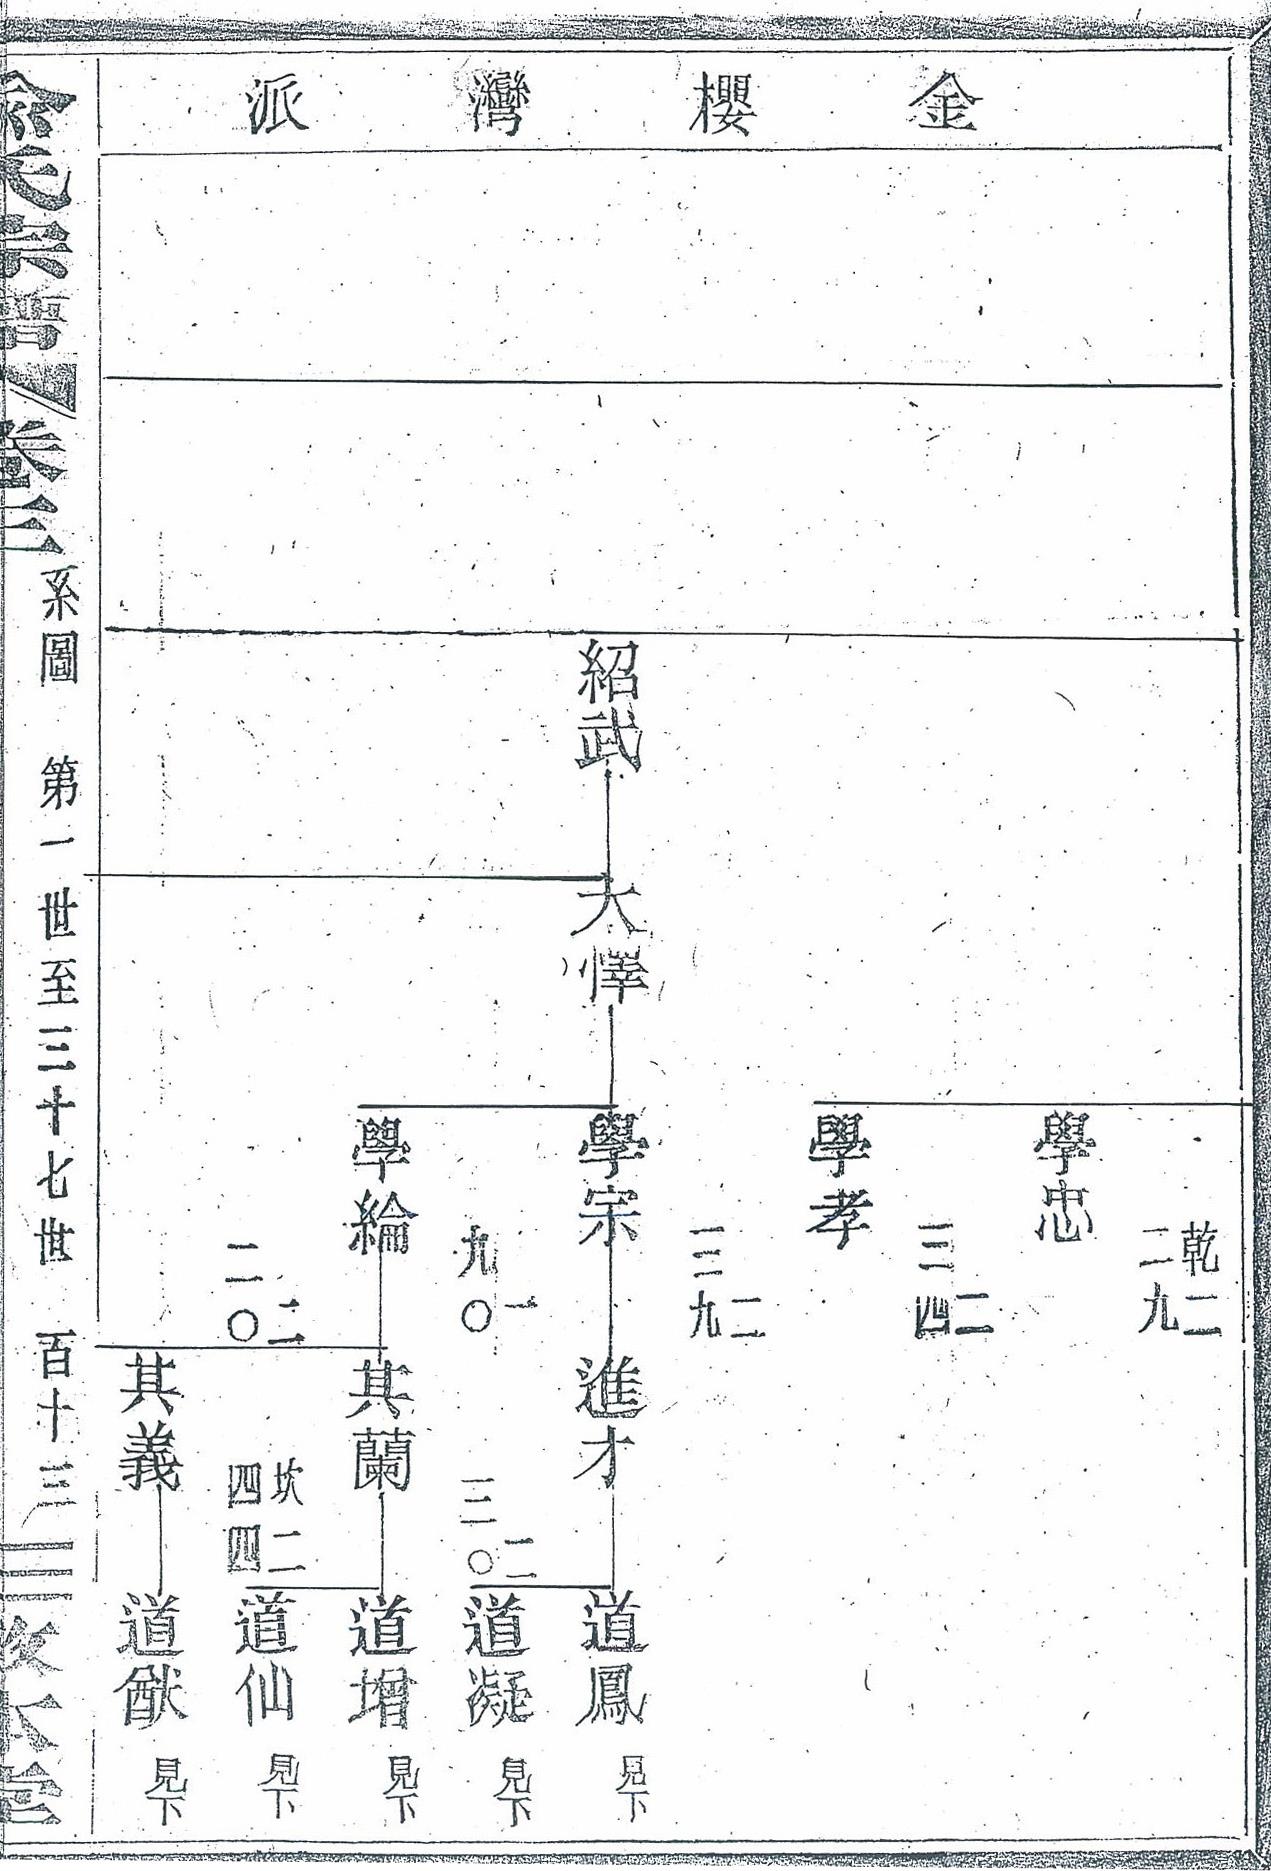 金櫻灣派
紹武
大懌
學忠
學孝
學宗
學綸
乾二
二九
二四
三
二九
三
一〇
九
二〇
二
進才
其蘭
其義
二〇
三
坎二
四四
道鳳 見下
道凝 見下
道增 見下
道仙 見下
道猷 見下
俞氏宗譜 卷三
系圖 第一世至三十七世 百十三
敦本堂